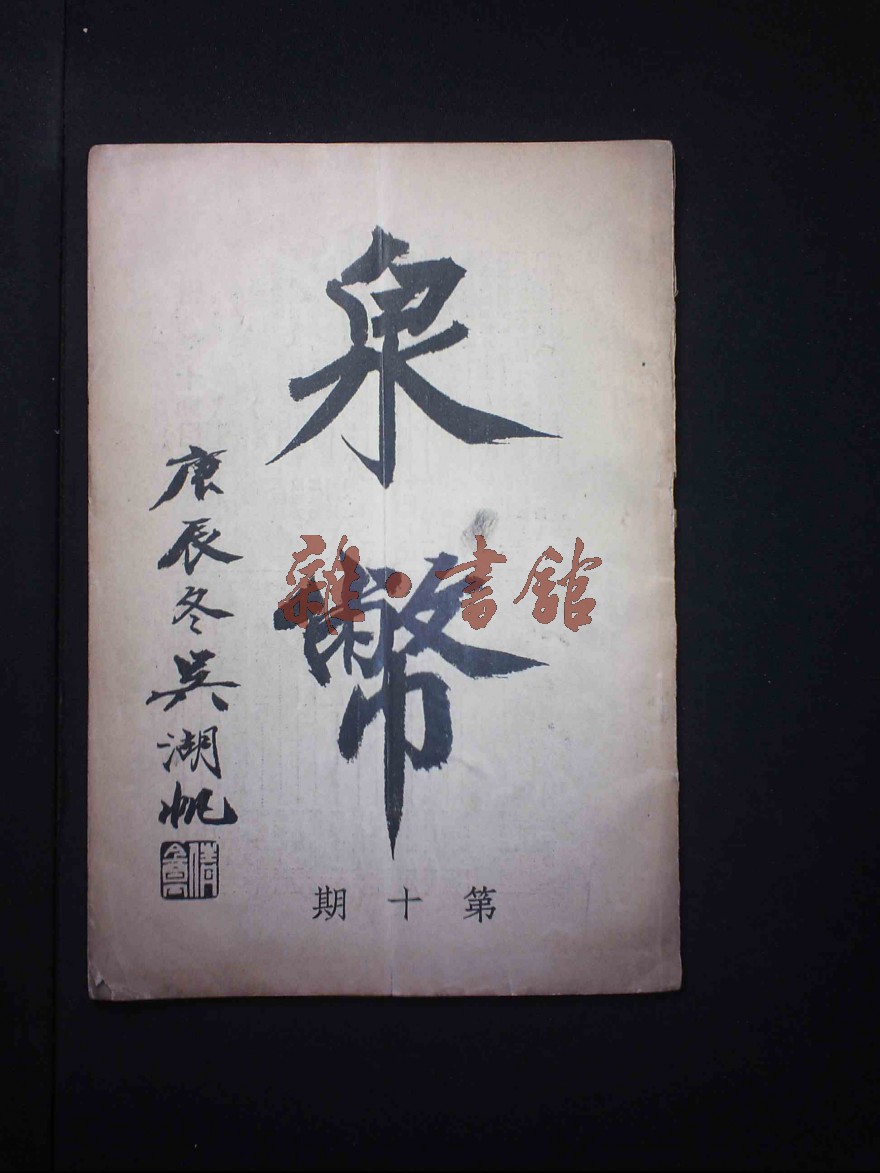 泉幣
庚辰冬吳湖帆
第十期
雜·書館